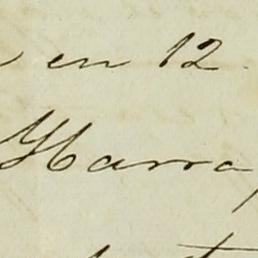 en 12
Ybarra,